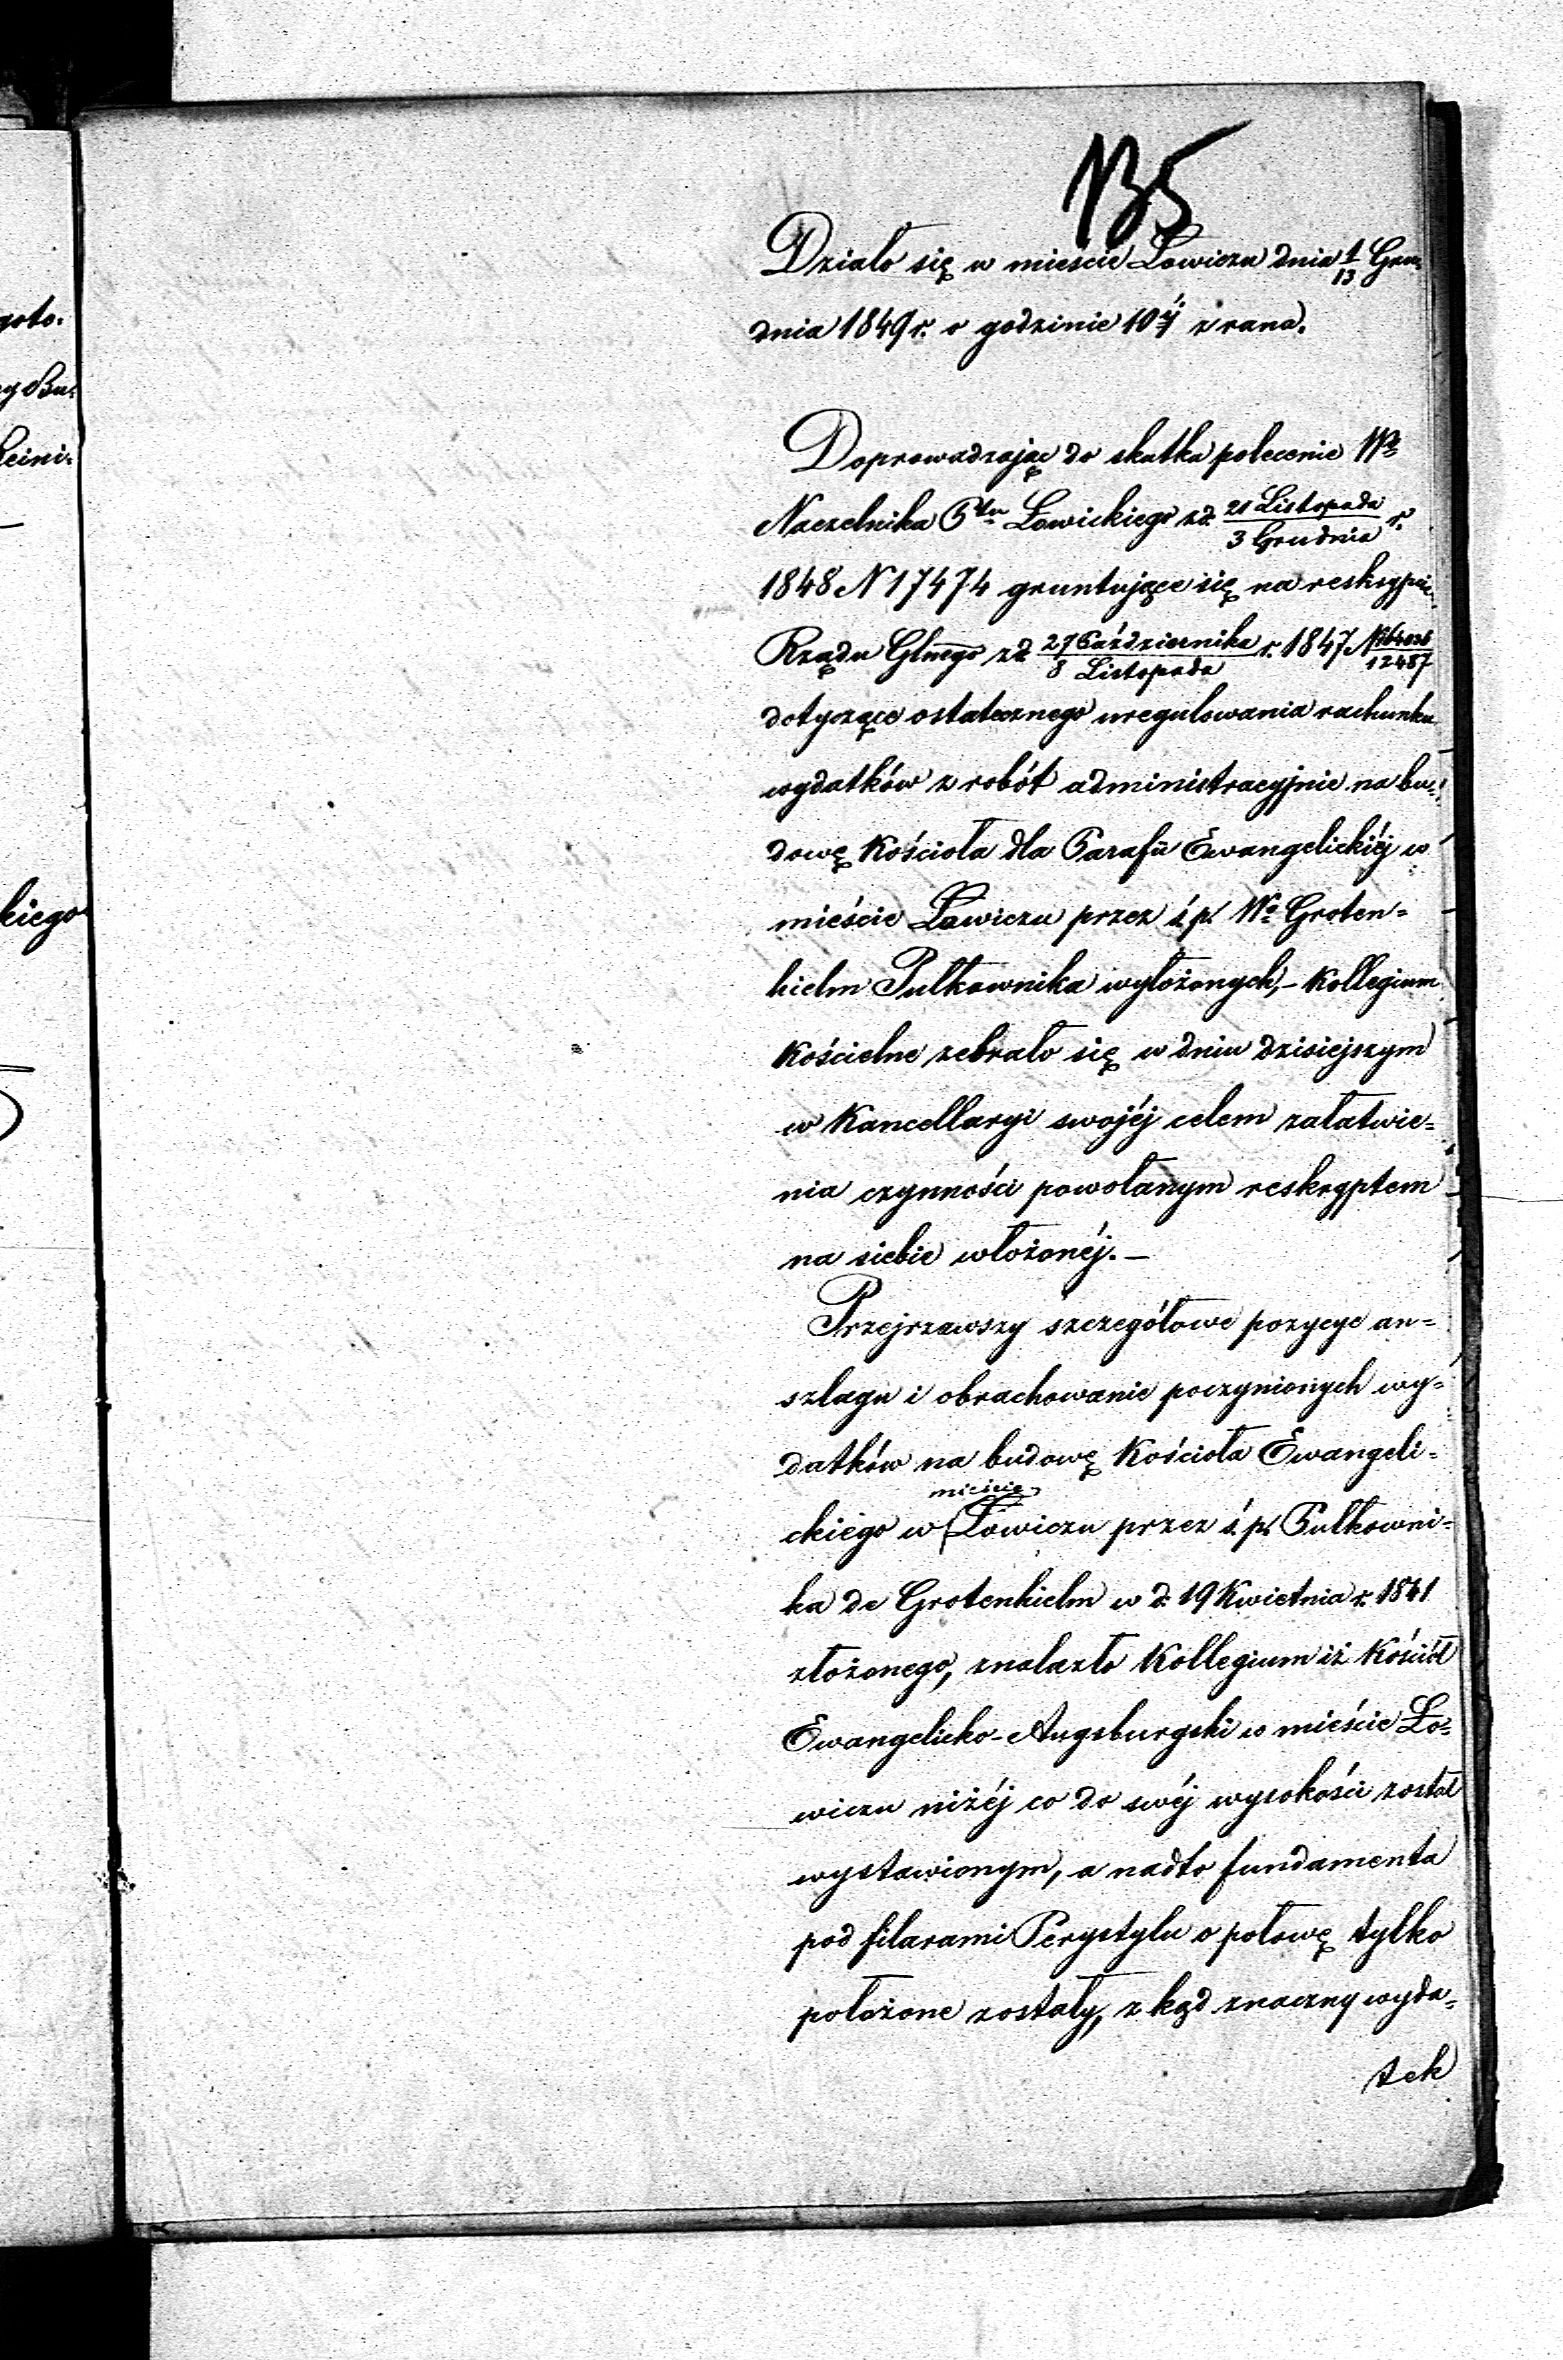 135
Działo się w mieście Łowiczu dnia 1/13 Gru-
dnia 1849 r. o godzinie 10éj z rana.
Doprowadzając do skutku polecenie
Naczelnika Ptu Łowickiego z d. 21 Listopada/3 Grudnia r.
1848 N 17474 gruntujące się na reskrypcie
Rządu Glnego z d. 27 Października/8 Listopada r. 1847 N /12487
dotyczące ostatecznego uregulowania rachunku
wydatków z robót administracyjnie na bu-
dowę Kościoła dla Parafii Ewangelickiéj w
mieście Łowiczu przez ś. p. Wo Groten-
hielm Pułkownika wyłożonych, – Kollegium
Kościelne zebrało się w dniu dzisiejszym
w Kancellaryi swojéj celem załatwie-
nia czynności powołanym reskryptem
na siebie włożonéj. –
Przejrzawszy szczegółowe pozycye an-
szlagu i obrachowanie poczynionych wy-
datków na budowę Kościoła Ewangeli-
mieście
ckiégo w Łowiczu przez ś. p. Pułkowni-
ka de Grotenhielm w d. 19 Kwietnia r. 1841
złożonego, znalazło Kollegium iż Kościół
Ewangelicko-Augsburgski w mieście Ło-
wiczu niżéj co do swéj wysokości został
wystawionym, a nadto fundamenta
pod filarami Perystylu o połowę tylko
położone zostały, z kąd znaczny wyda-
tek
goto.
kiego